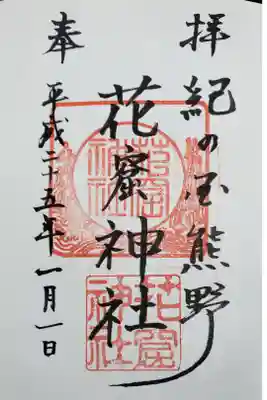 奉拝
紀の国熊野
花窟神社
平成二十五年一月一日
花窟神社